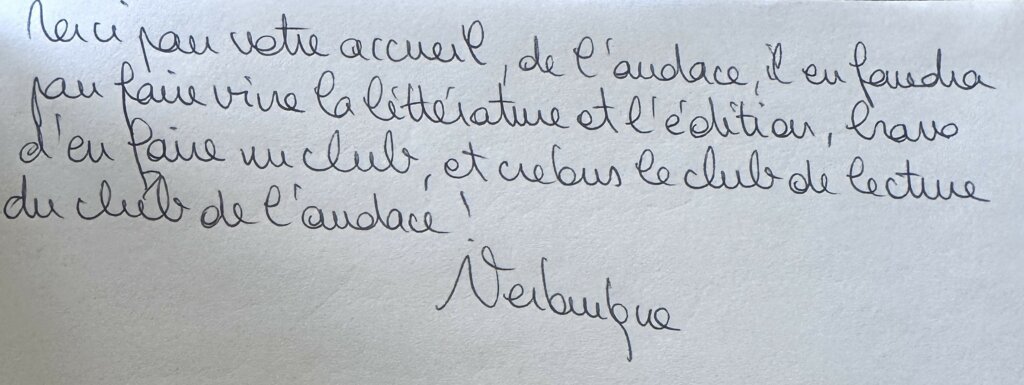 Merci pour votre accueil, de l'audace, il en faudra
pour faire vivre la littérature et l'édition, bravo
d'en faire un club, et créons le club de lecture
du club de l'audace !